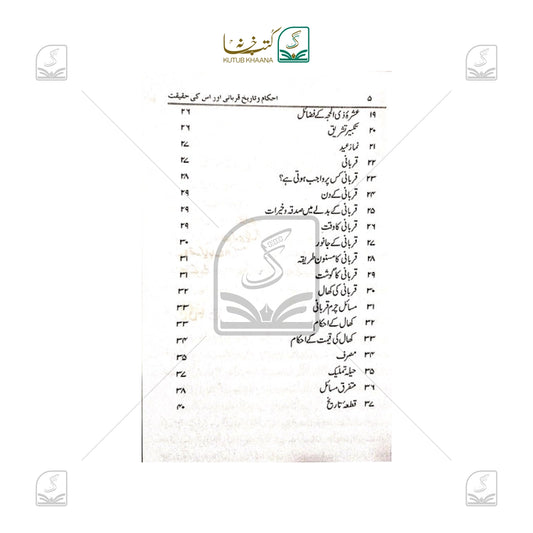 کتب خانہ
KUTUB KHAANA
۵ احکام و تاریخ قربانی اور اس کی حقیقت
۱۹ عشرۂ ذی الحجہ کے فضائل ۲۶
۲۰ تکبیر تشریق ۲۶
۲۱ نماز عید ۲۷
۲۲ قربانی ۲۷
۲۳ قربانی کس پر واجب ہوتی ہے؟ ۲۸
۲۴ قربانی کے دن ۲۹
۲۵ قربانی کے بدلے میں صدقہ و خیرات ۲۹
۲۶ قربانی کا وقت ۲۹
۲۷ قربانی کے جانور ۳۰
۲۸ قربانی کا مسنون طریقہ ۳۱
۲۹ قربانی کا گوشت ۳۱
۳۰ قربانی کی کھال ۳۲
۳۱ مسائل چرم قربانی ۳۳
۳۲ کھال کے احکام ۳۳
۳۳ کھال کی قیمت کے احکام ۳۴
۳۴ مصرف ۳۵
۳۵ حیلہ تملیک ۳۷
۳۶ متفرق مسائل ۳۸
۳۷ قطعۂ تاریخ ۴۰